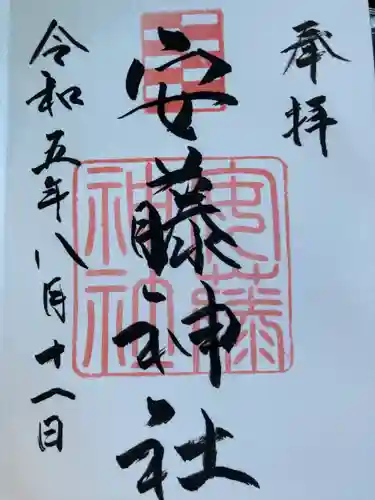 奉拝
安藤神社
安藤神社
令和五年八月十八日